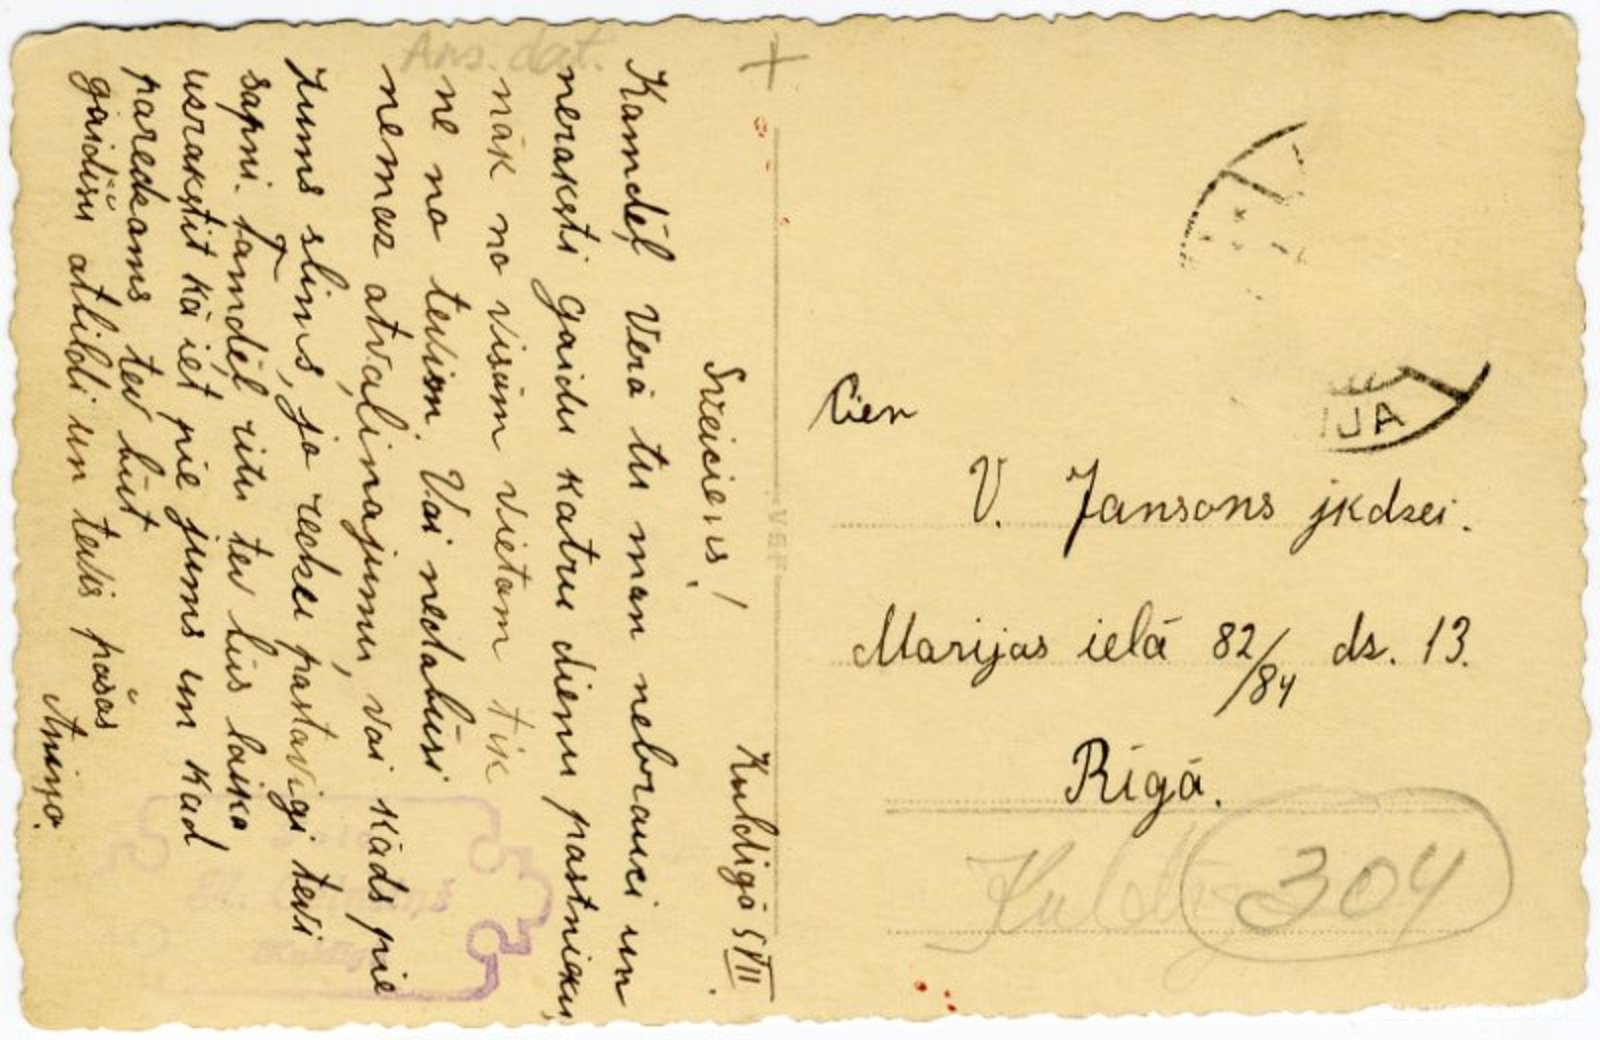 Ans. dat.
Kuldīgā 5 VII.
Sveiciens!
Kamdēļ Vera tu man nebrauci un
neraksti gaidu katru dienu pastnieku,
nāk no visām vietam tik
ne no tevim. Vai nedabūsi
nemaz atvaļinajumu, vai kāds pie
Jums slims, jo redzu pastavigi tevi
sapni. Tamdēļ ritu tev būs laika
usrakstit kā iet pie jums un kad
paredzams tev būt
gaidīšu atbildi un tevis pašas
Cien
V. Jansons jkdzei.
Marijas ielā 82/84 dz. 13.
Rīgā.
304
IJA